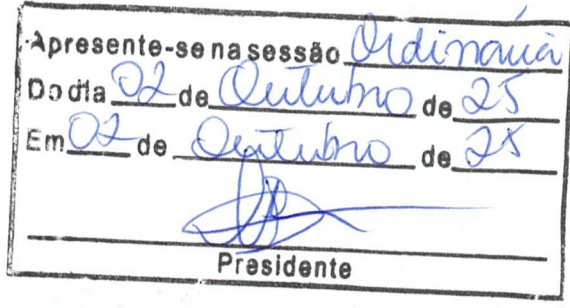 Apresente-se na sessão Ordinária
Do dia 02 de Outubro de 25
Em 02 de Outubro de 25
Presidente